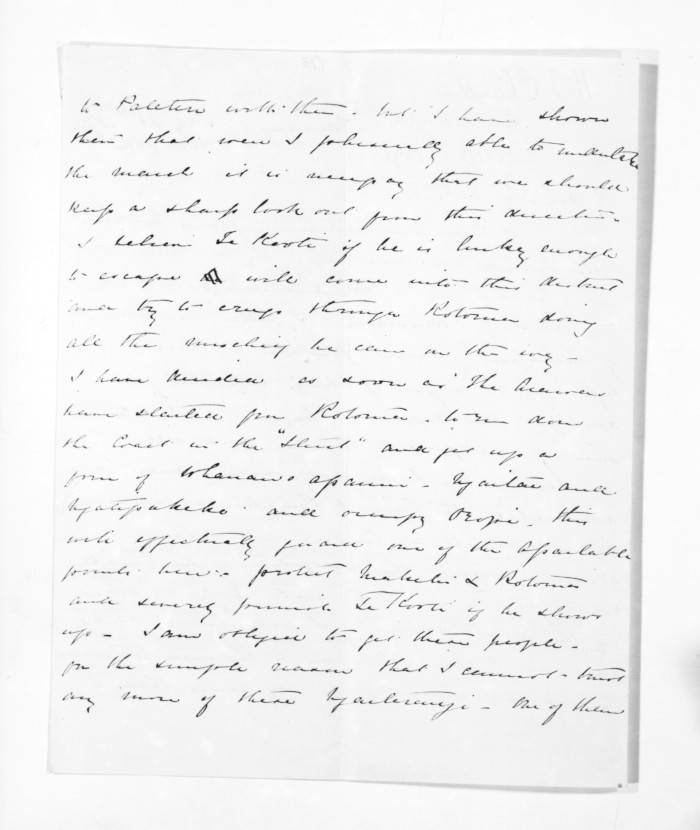 to with them. but I have shown
them that were I physically able to undertake
the march it is necessary that we should
keep a sharp look out from this direction
I believe Te Kooti if he is lucky enough
to escape will come into this district
and try to cross through Rotoma doing
all the mischief he can on the way -
I have decided as soon as the Arawas
have started from Rotoma. to run down
the Coast in the "Sturt" and get up a
force of Whanau apanui - Ngaitai and
Ngatipukeko. and occupy this
will effectually guard one of the assailable
points here - protect Matata & Rotoma
and severely punish Te Kooti if he shows
up - I am obliged to get these people -
for the simple reason that I cannot trust
any more of these - One of them